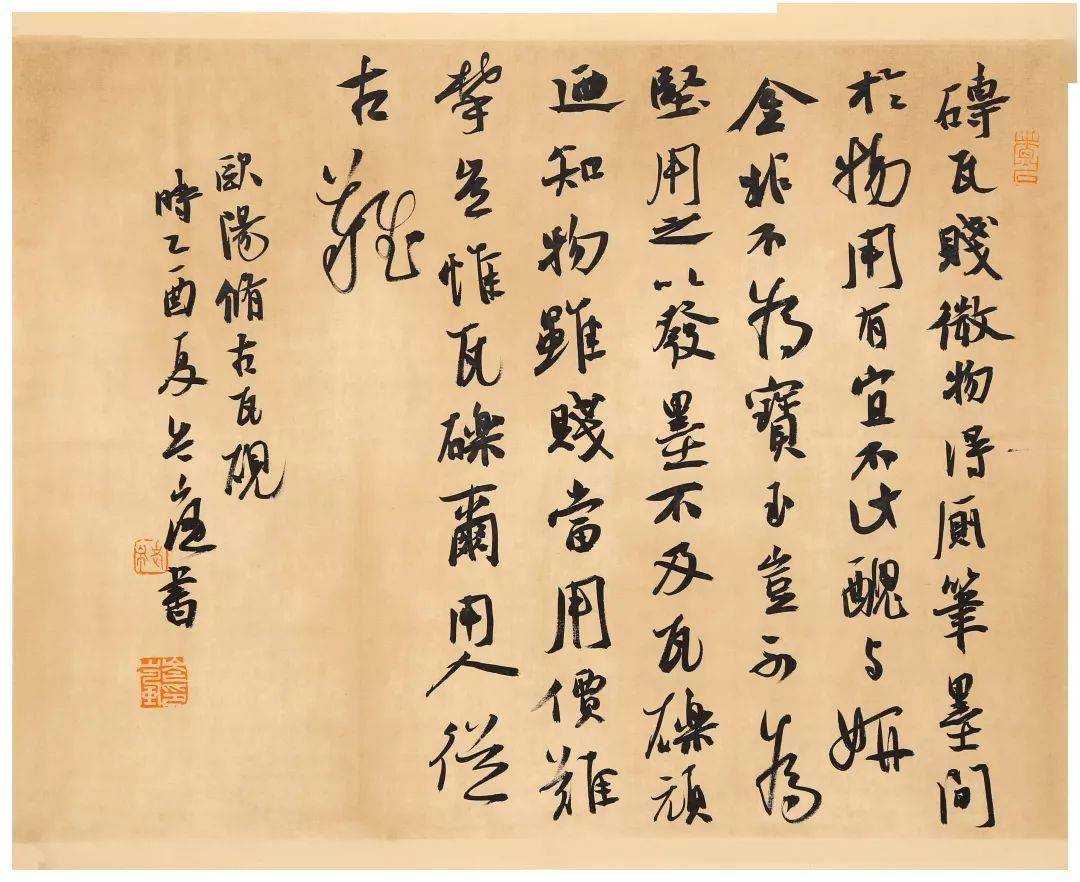 磚瓦賤微物得廁筆墨間
於物用有宜不計醜与妍
金非不為寶玉豈不為
堅用之以發墨不及瓦礫頑
迺知物雖賤當用價難
攀豈惟瓦礫爾用人從
古難
歐陽脩古瓦硯
時乙酉夏書